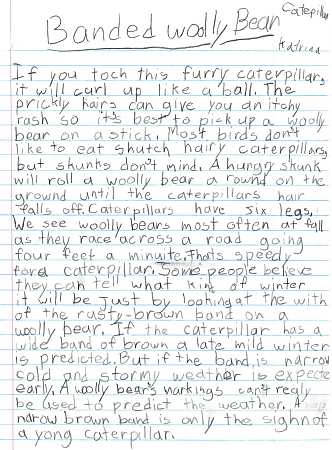 Banded woolly Bear
Caterpilly
Katrina
If you toch this furry caterpillar,
it will curl up like a ball. The
prickly hairs can give you an itchy
rash so it's best to pick up a wooly
bear on a stick. Most birds don't
like to eat shutch hairy caterpillars,
but skunks don't mind. A hungry skunk
will roll a woolly bear a round on the
ground until the caterpillars hair
falls off. Caterpillars have six legs.
We see woolly bears most often at fall
as they race across a road going
four feet a minuite. Thats speedy
for a caterpillar. Some people believe
they can tell what kind of winter
it will be just by looking at the with
of the rusty-brown band on a
woolly bear. If the caterpillar has a
wide band of brown a late mild winter
is predicted. But if the band is narrow
cold and stormy weather is expecte
early. A woolly bear's markings can't realy
be used to predict the weather. A
narow brown band is only the sighn of
a yong caterpillar.